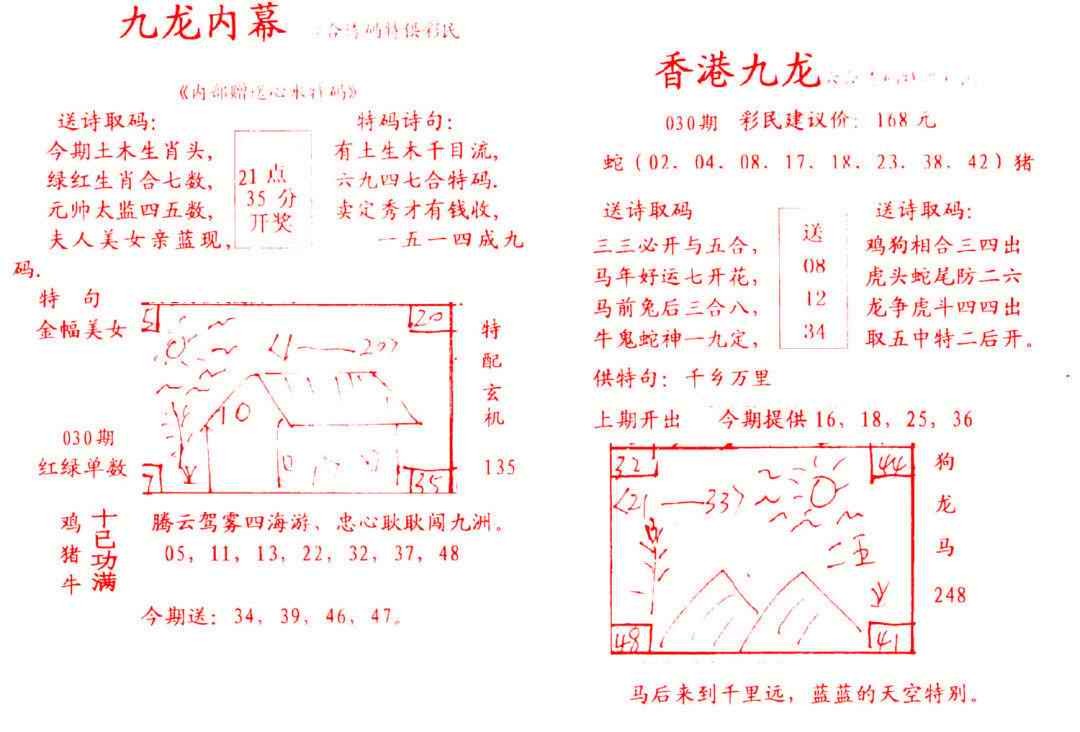 九龙内幕
《内部赠送心水特码》
送诗取码：
今期土木生肖头，
绿红生肖合七数，
元帅太监四五数，
夫人美女亲蓝现，
码．
21点
35分
开奖
特码诗句：
有土生木千目流，
六九四七合特码．
卖定秀才有钱收，
一五一四成九
特 句
金幅美女
030期
红绿单数
5
20
〈1——20〉
10
7
35
特配玄机
135
鸡猪牛
十已功满
腾云驾雾四海游、忠心耿耿闯九洲。
05，11，13，22，32，37，48
今期送：34，39，46，47。
香港九龙
030期 彩民建议价：168元
蛇（02．04．08．17．18．23．38．42）猪
送诗取码
三三必开与五合，
马年好运七开花，
马前兔后三合八，
牛鬼蛇神一九定，
送
08
12
34
送诗取码：
鸡狗相合三四出
虎头蛇尾防二六
龙争虎斗四四出
取五中特二后开。
供特句：千乡万里
上期开出 今期提供16，18，25，36
32
44
〈21——33〉
二五
48
41
狗
龙
马
248
马后来到千里远，蓝蓝的天空特别。